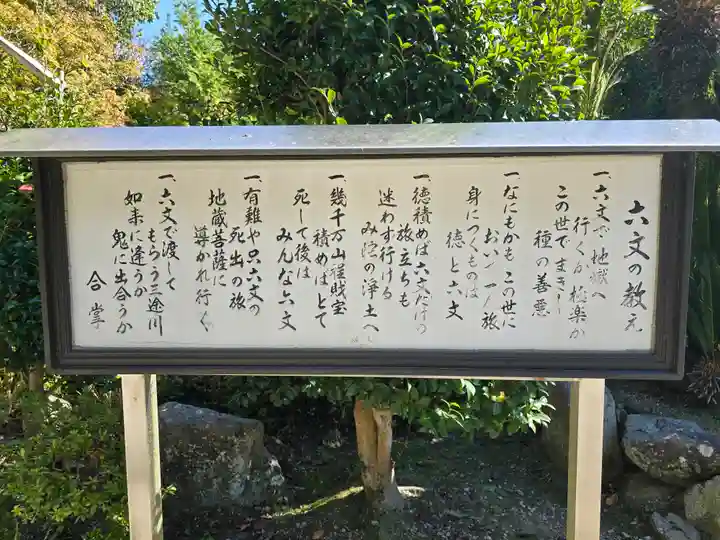 六文の教え
一、六文で地獄へ
行くか極楽か
この世でまきし
種の善悪
一、なにもかもこの世に
おいて一人旅
身につくものは
徳と六文
一、徳積めば六文だけの
旅立ちも
迷わず行ける
み法の浄土へ
一、幾千万山程財宝
積めばとて
死して後は
みんな六文
一、有難や只六文の
死出の旅
地蔵菩薩に
導かれ行く
一、六文で渡して
もらう三途川
如来に逢うか
鬼に出合うか
合掌